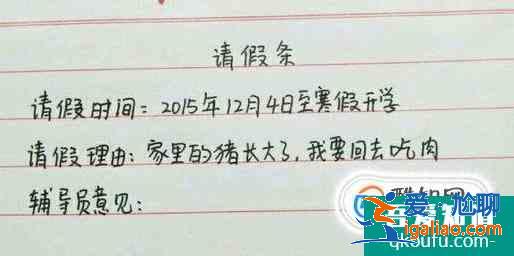 请假条
请假时间：2015年12月4日至寒假开学
请假理由：家里的猪长大了，我要回去吃肉
辅导员意见：
爱·尬聊
igaliao.com
qkoufu.com